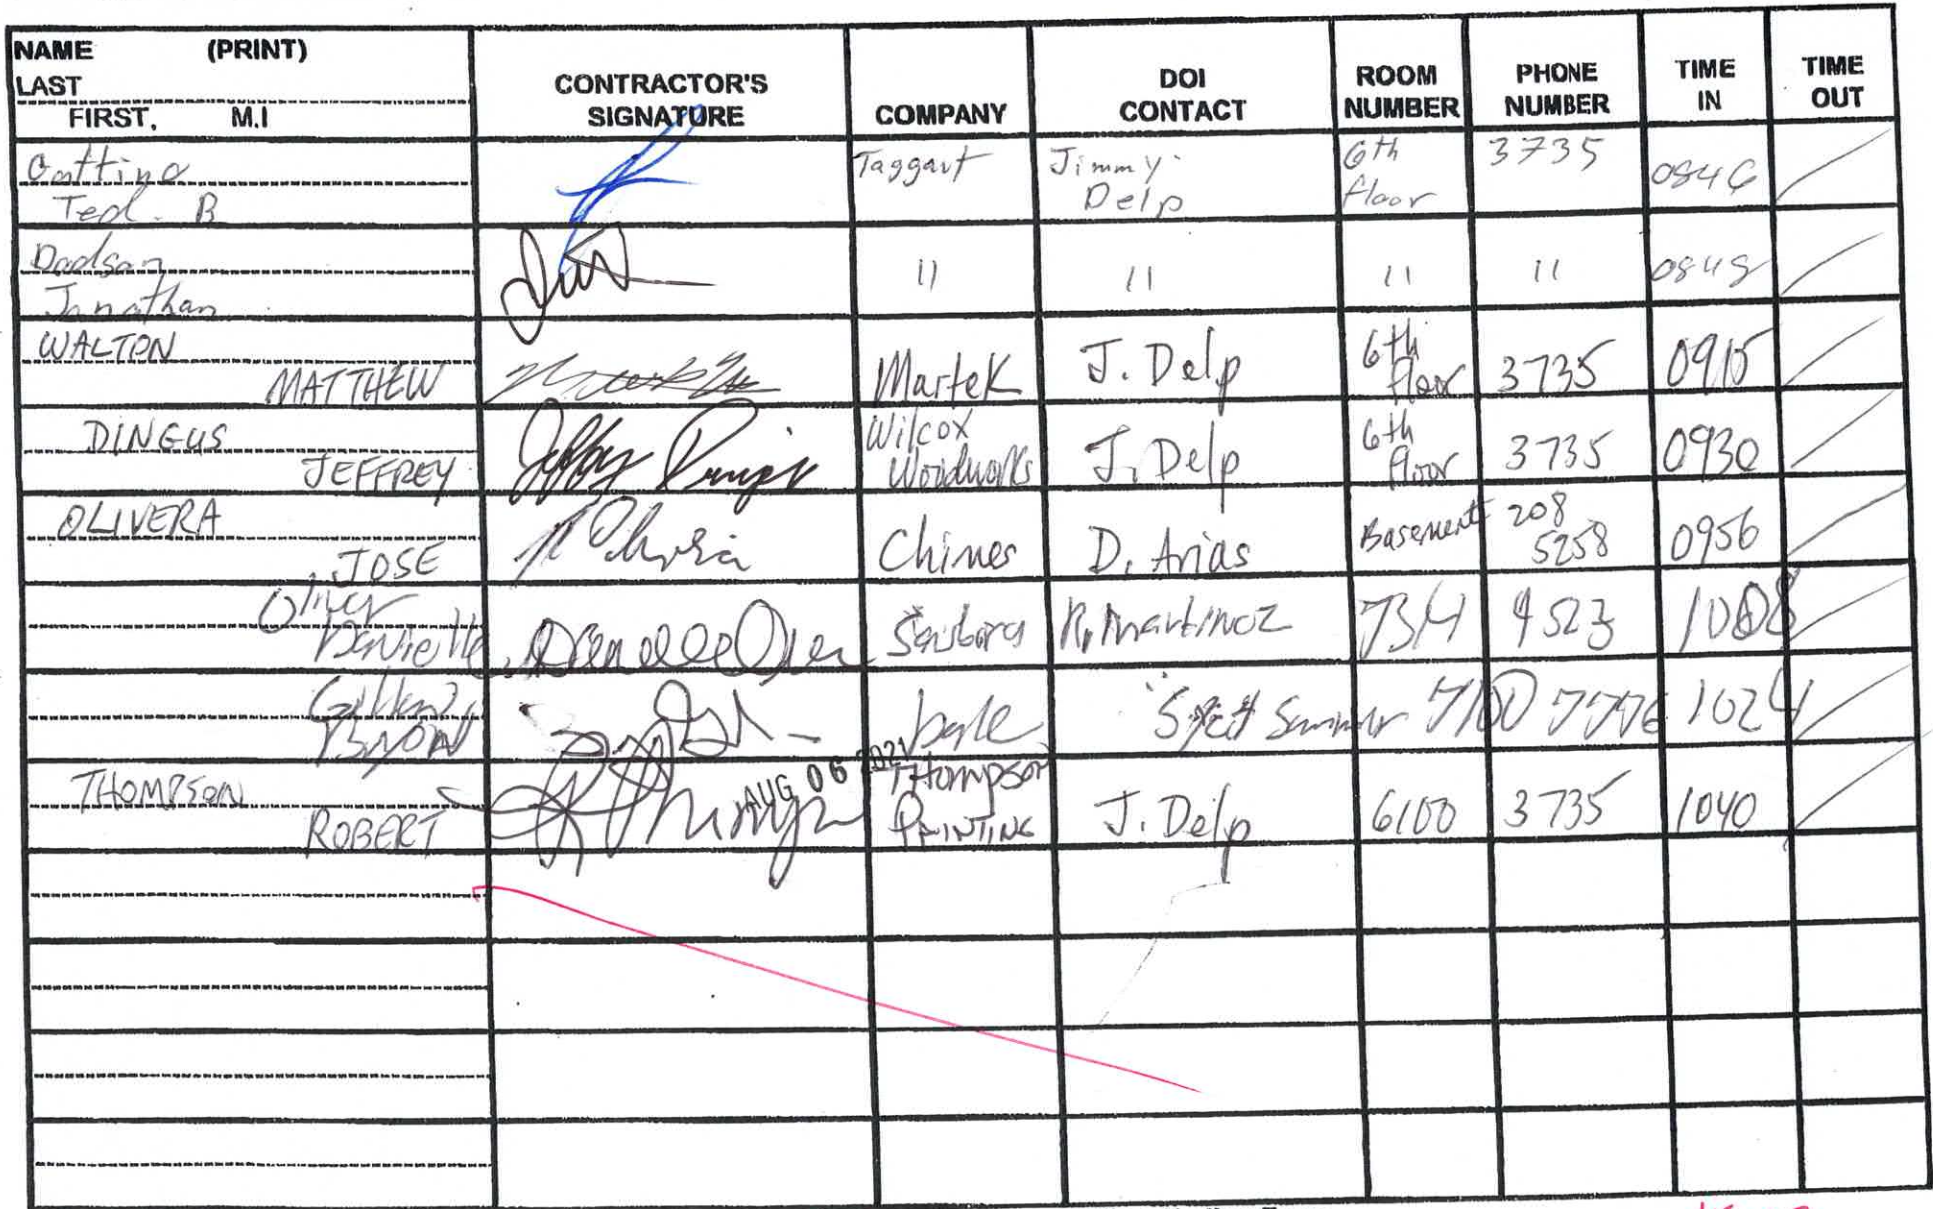 NAME (PRINT)
LAST
FIRST, M.I
CONTRACTOR'S
SIGNATURE
COMPANY
DOI
CONTACT
ROOM
NUMBER
PHONE
NUMBER
TIME
IN
TIME
OUT
Ted. B
Taggart
Jimmy
Delp
6th
floor
3735
0846
Dodson
Jonathan
11
11
11
11
0848
WALTON
MATTHEW
Martek
J. Delp
6th
floor
3735
0915
DINGUS
JEFFREY
Wilcox
Woodworks
J. Delp
6th
floor
3735
0930
OLIVERA
JOSE
Chimes
D. Arias
Basement
208
5258
0956
Oliver
Danielle
R. Martinez
4523
1008
Scott
7100
7776
1024
AUG 06 2021
THOMPSON
ROBERT
THOMPSON
PRINTING
J. Delp
6100
3735
1040